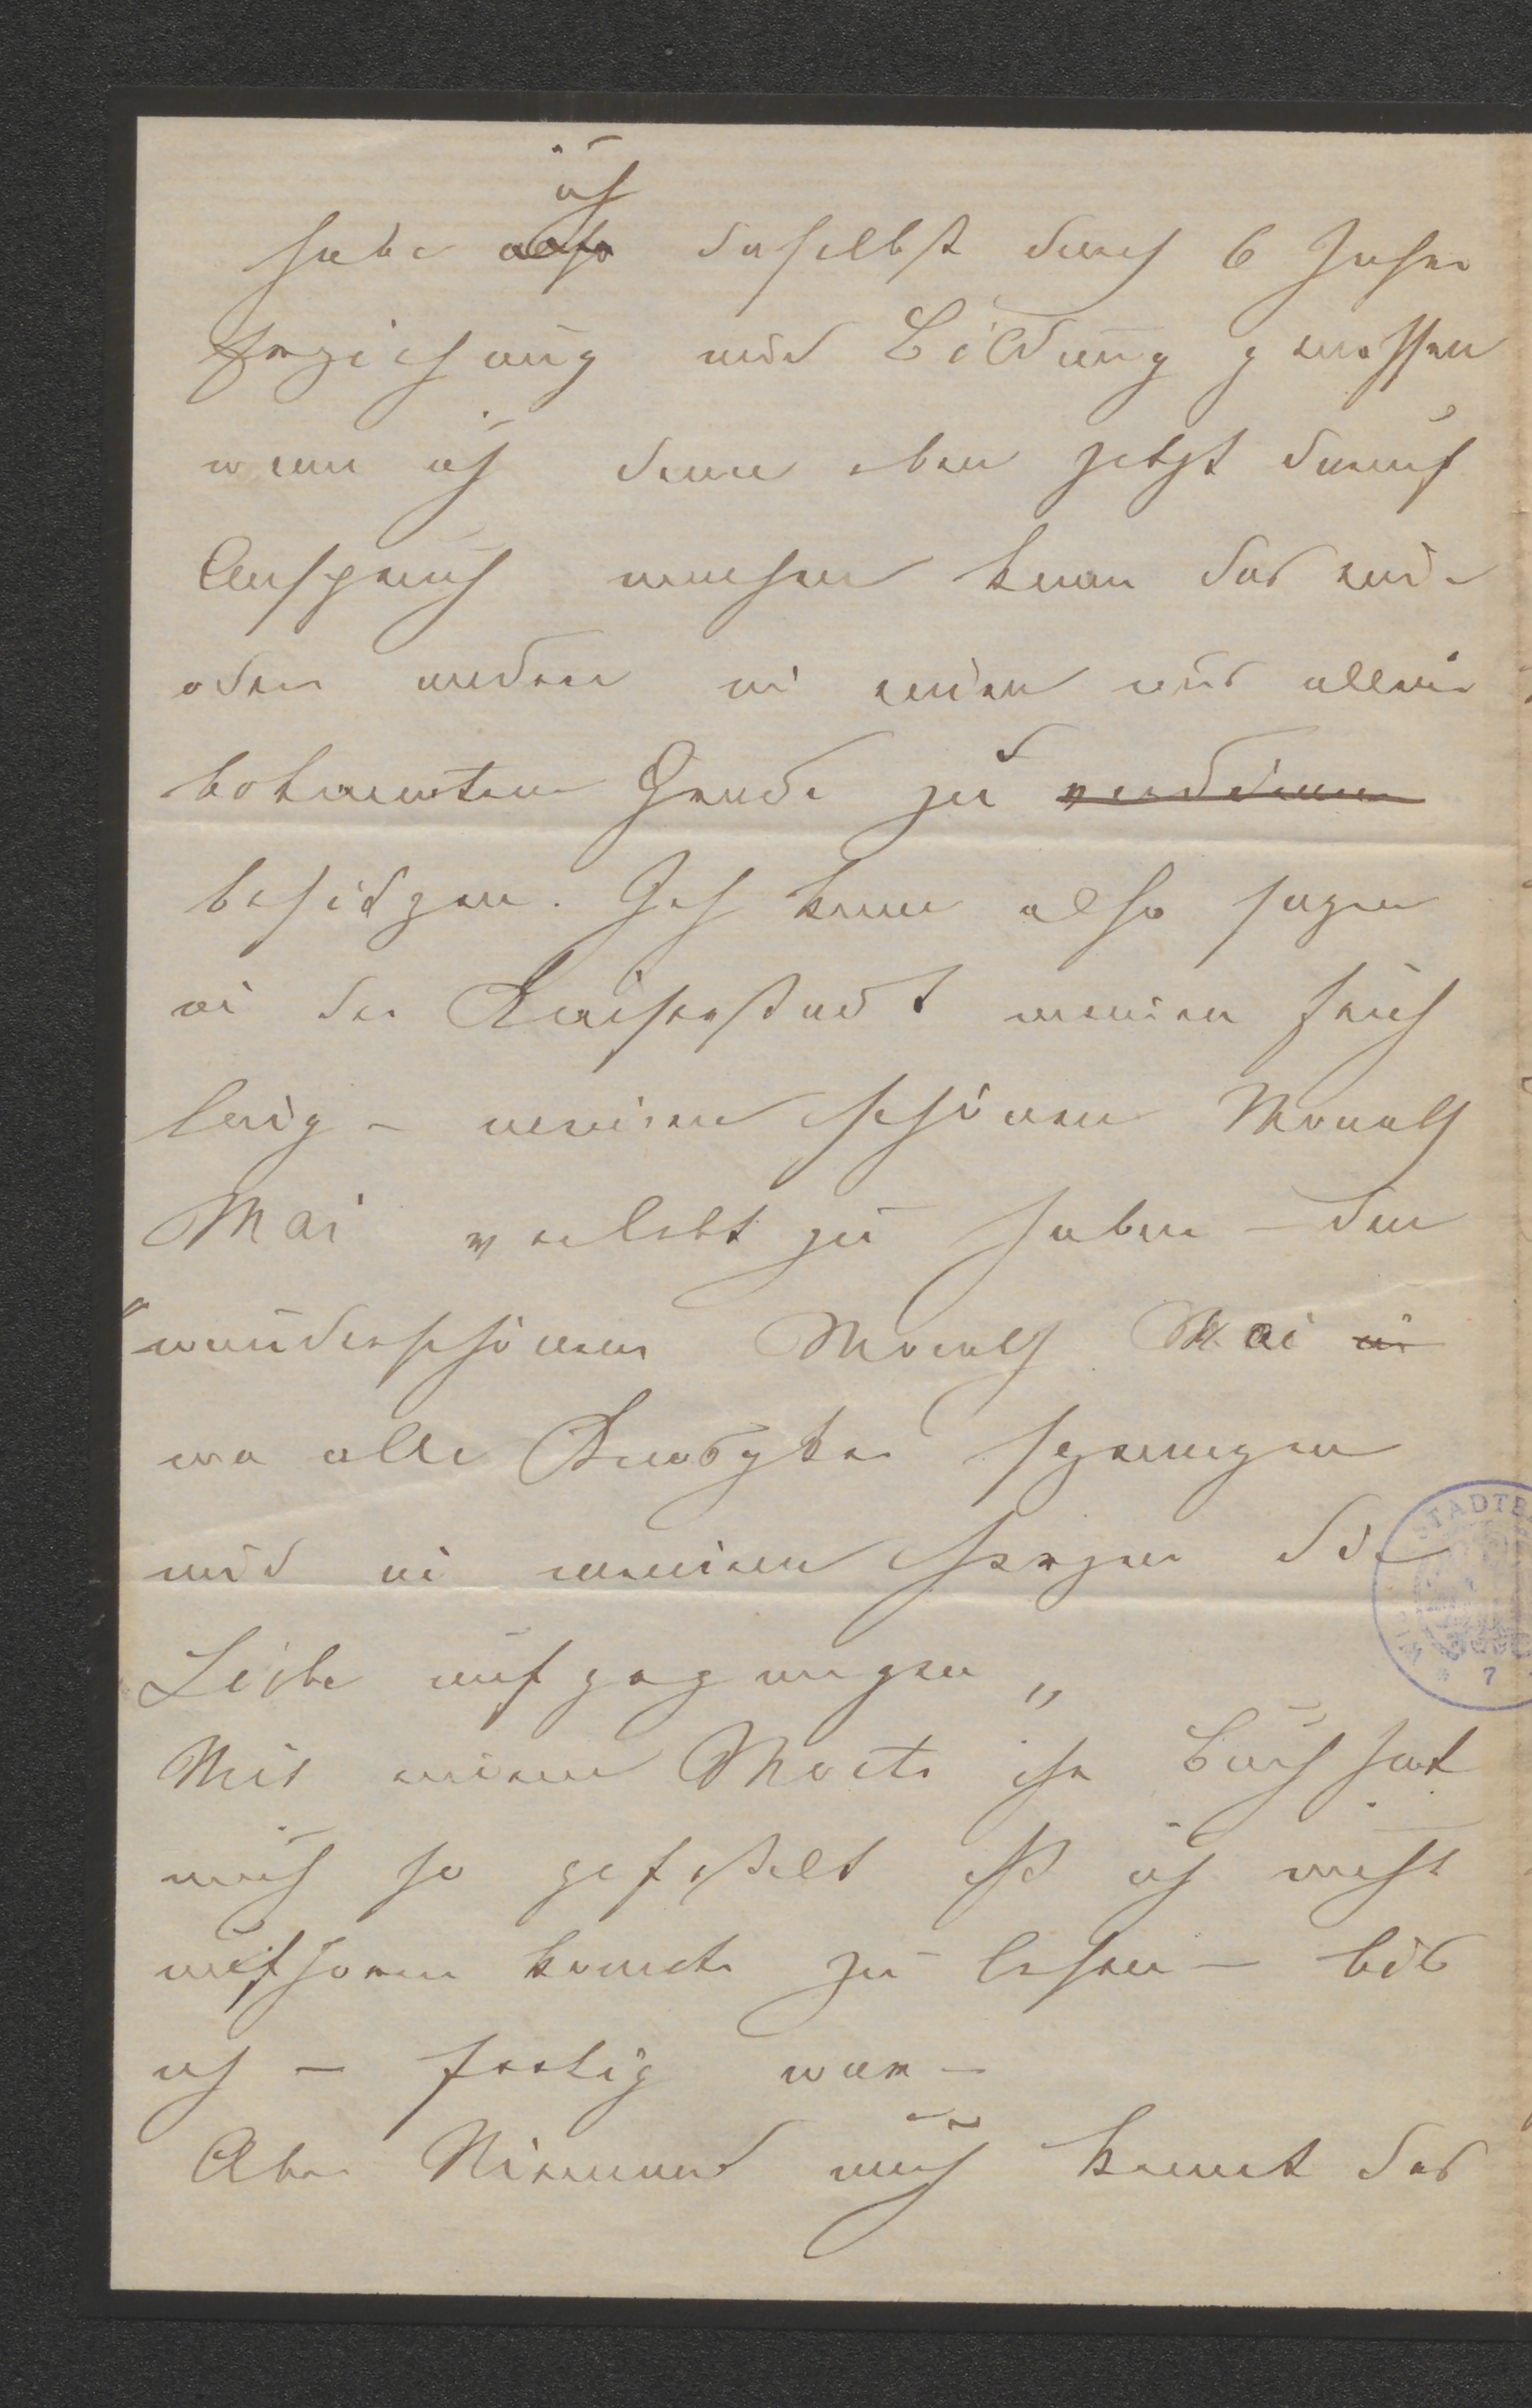 habe ~~also~~ ich daselbst durch 6 Jahre
Erziehung und Bildung genossen
wenn ich denn eben jetzt darauf
Anspruch machen kann das eine
oder andere in einem uns allein
bekanntem Grade zu ~~verdienen~~
besitzen. Ich kann also sagen
in der Kaiserstadt meinen Früh
ling – meinen schönen Monath
Mai verlebt zu haben – den
"wunderschönen Monath Mai ~~in~~
wo alle Knospen sprangen
und in meinem Herzen die
Liebe aufgegangen„
Mit einem Worte ihr Buch hat
mich so gefesselt daß ich nicht
aufhören konnte zu lesen – bis
ich – fertig war –
Aber Niemand auch kennt das
STADTB
7